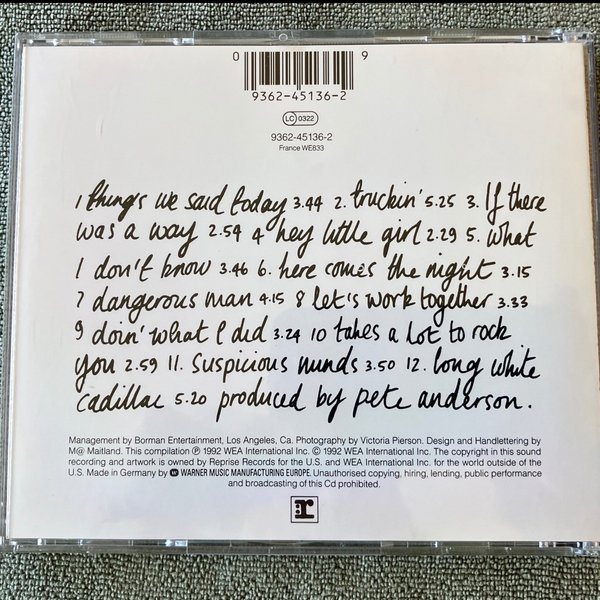 0 9
9362-45136-2
LC 0322
9362-45136-2
France WE833
1 things we said today 3.44 2. truckin' 5.25 3. If there
was a way 2.54 4 hey little girl 2.29 5. what
I don't know 3.46 6. here comes the night 3.15
7 dangerous man 4.15 8 let's work together 3.33
9 doin' what I did 3.24 10 takes a lot to rock
you 2.59 11. suspicious minds 3.50 12. long white
cadillac 5.20 produced by pete anderson.
Management by Borman Entertainment, Los Angeles, Ca. Photography by Victoria Pierson. Design and Handlettering by
M@ Maitland. This compilation ℗ 1992 WEA International Inc. © 1992 WEA International Inc. The copyright in this sound
recording and artwork is owned by Reprise Records for the U.S. and WEA International Inc. for the world outside of the
U.S. Made in Germany by WARNER MUSIC MANUFACTURING EUROPE. Unauthorised copying, hiring, lending, public performance
and broadcasting of this Cd prohibited.
r